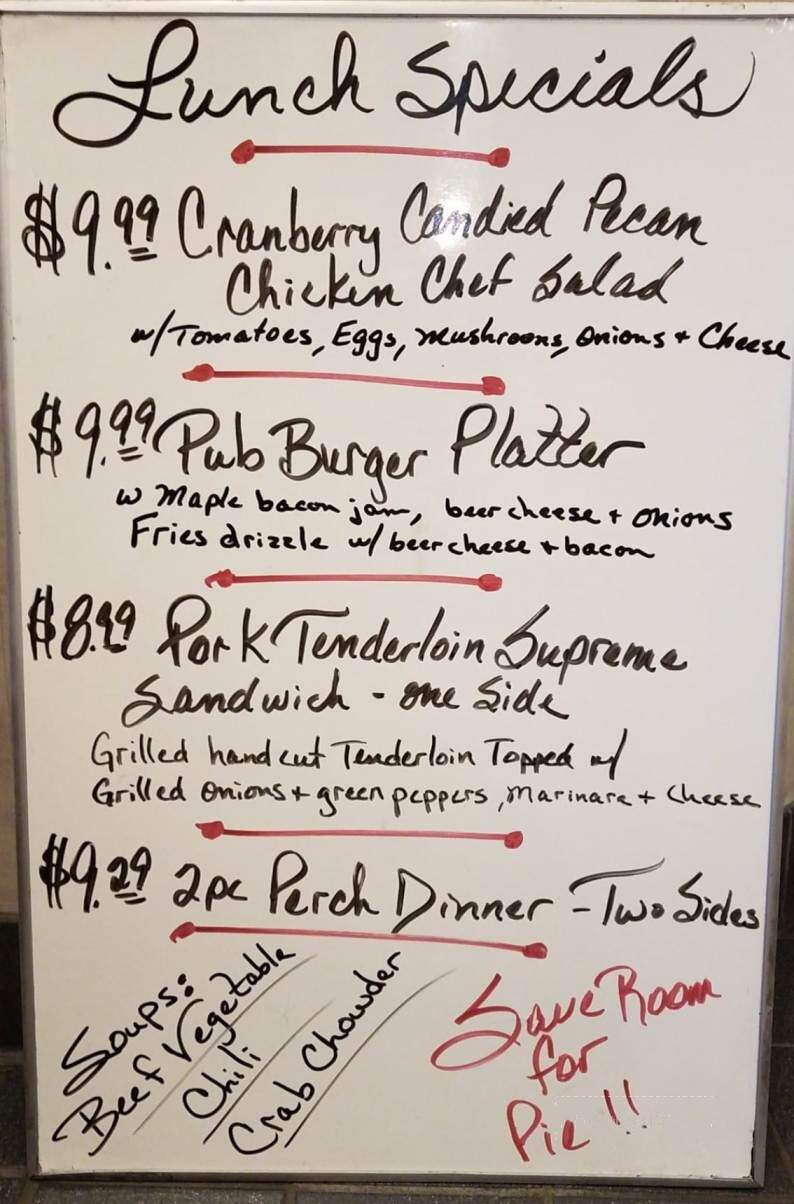 Lunch Specials
$9.99 Cranberry Candied Pecan
Chicken Chef Salad
w/Tomatoes, Eggs, Mushrooms, Onions + Cheese
$9.99 Pub Burger Platter
w Maple bacon jam, beer cheese + onions
Fries drizzle w/ beer cheese + bacon
Pork Tenderloin Supreme
Sandwich - one Side
Grilled hand cut Tenderloin Topped w/
Grilled Onions + green peppers, Marinara + Cheese
$9.29 2pc Perch Dinner - Two Sides
Soups:
Beef Vegetable
Chili
Crab Chowder
Save Room
for
Pie !!